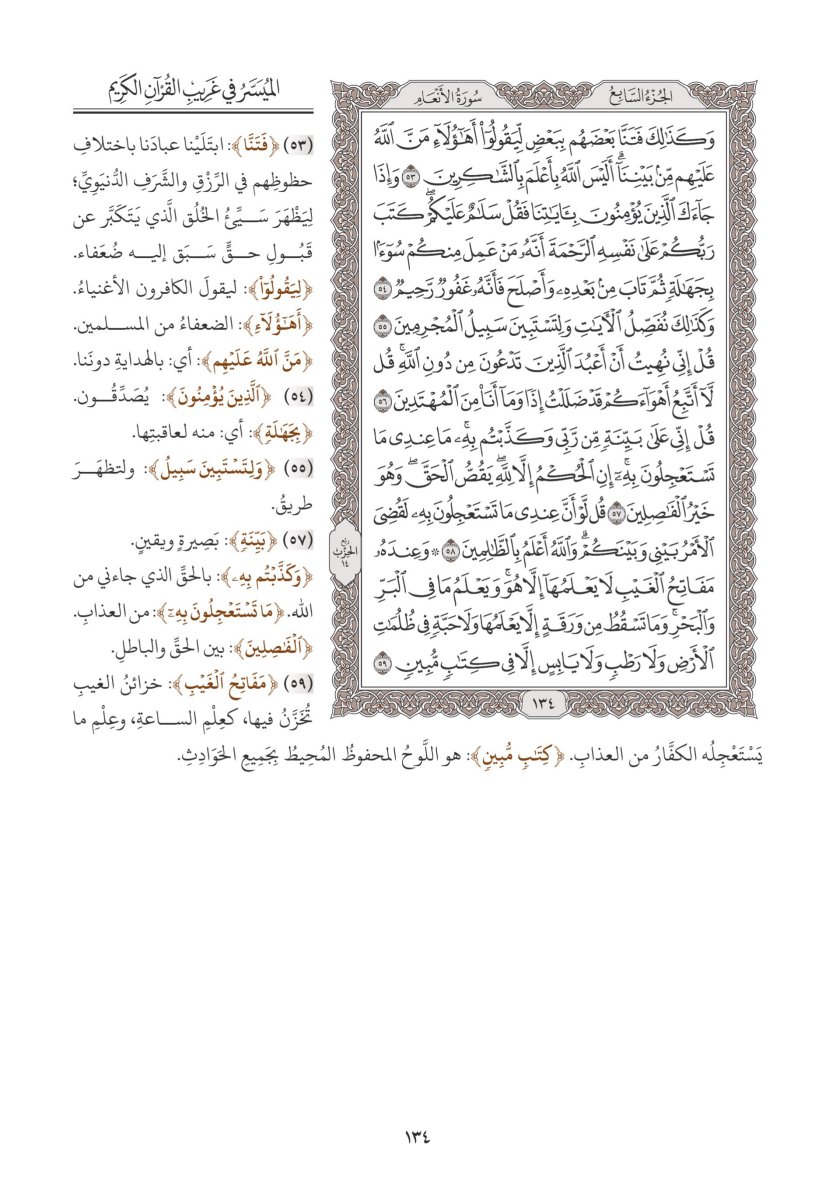 الجُزْءُ السَّابِعُ
سُورَةُ الأَنْعَامِ
وَكَذَٰلِكَ فَتَنَّا بَعْضَهُم بِبَعْضٍ لِّيَقُولُوٓا۟ أَهَٰٓؤُلَآءِ مَنَّ ٱللَّهُ
عَلَيْهِم مِّنۢ بَيْنِنَآ ۗ أَلَيْسَ ٱللَّهُ بِأَعْلَمَ بِٱلشَّٰكِرِينَ ٥٣ وَإِذَا
جَآءَكَ ٱلَّذِينَ يُؤْمِنُونَ بِـَٔايَٰتِنَا فَقُلْ سَلَٰمٌ عَلَيْكُمْ ۖ كَتَبَ
رَبُّكُمْ عَلَىٰ نَفْسِهِ ٱلرَّحْمَةَ أَنَّهُۥ مَنْ عَمِلَ مِنكُمْ سُوٓءًۢا
بِجَهَٰلَةٍ ثُمَّ تَابَ مِنۢ بَعْدِهِۦ وَأَصْلَحَ فَأَنَّهُۥ غَفُورٌ رَّحِيمٌ ٥٤
وَكَذَٰلِكَ نُفَصِّلُ ٱلْـَٔايَٰتِ وَلِتَسْتَبِينَ سَبِيلُ ٱلْمُجْرِمِينَ ٥٥
قُلْ إِنِّى نُهِيتُ أَنْ أَعْبُدَ ٱلَّذِينَ تَدْعُونَ مِن دُونِ ٱللَّهِ ۚ قُل
لَّآ أَتَّبِعُ أَهْوَآءَكُمْ ۙ قَدْ ضَلَلْتُ إِذًا وَمَآ أَنَا۠ مِنَ ٱلْمُهْتَدِينَ ٥٦
قُلْ إِنِّى عَلَىٰ بَيِّنَةٍ مِّن رَّبِّى وَكَذَّبْتُم بِهِۦ ۚ مَا عِندِى مَا
تَسْتَعْجِلُونَ بِهِۦٓ ۚ إِنِ ٱلْحُكْمُ إِلَّا لِلَّهِ ۖ يَقُصُّ ٱلْحَقَّ ۖ وَهُوَ
خَيْرُ ٱلْفَٰصِلِينَ ٥٧ قُل لَّوْ أَنَّ عِندِى مَا تَسْتَعْجِلُونَ بِهِۦ لَقُضِىَ
ٱلْأَمْرُ بَيْنِى وَبَيْنَكُمْ ۗ وَٱللَّهُ أَعْلَمُ بِٱلظَّٰلِمِينَ ٥٨ ۞ وَعِندَهُۥ
مَفَاتِحُ ٱلْغَيْبِ لَا يَعْلَمُهَآ إِلَّا هُوَ ۚ وَيَعْلَمُ مَا فِى ٱلْبَرِّ
وَٱلْبَحْرِ ۚ وَمَا تَسْقُطُ مِن وَرَقَةٍ إِلَّا يَعْلَمُهَا وَلَا حَبَّةٍ فِى ظُلُمَٰتِ
ٱلْأَرْضِ وَلَا رَطْبٍ وَلَا يَابِسٍ إِلَّا فِى كِتَٰبٍ مُّبِينٍ ٥٩
ربع
الحِزْبِ
١٤
١٣٤
المُيَسَّرُ في غَرِيبِ القُرْآنِ الكَرِيمِ
(٥٣) ﴿فَتَنَّا﴾: ابتَلَيْنا عبادَنا باختلافِ
حظوظِهم في الرِّزْقِ والشَّرَفِ الدُّنيَوِيِّ؛
لِيَظْهَرَ سَيِّئُ الخُلُقِ الَّذي يَتَكَبَّر عن
قَبُولِ حقٍّ سَبَق إليه ضُعَفاء.
﴿لِيَقُولُوٓا۟﴾: ليقولَ الكافرون الأغنياءُ.
﴿أَهَٰٓؤُلَآءِ﴾: الضعفاءُ من المسلمين.
﴿مَنَّ ٱللَّهُ عَلَيْهِم﴾: أي: بالهدايةِ دونَنا.
(٥٤) ﴿ٱلَّذِينَ يُؤْمِنُونَ﴾: يُصَدِّقُون.
﴿بِجَهَٰلَةٍ﴾: أي: منه لعاقبتِها.
(٥٥) ﴿وَلِتَسْتَبِينَ سَبِيلُ﴾: ولتظهَرَ
طريقُ.
(٥٧) ﴿بَيِّنَةٍ﴾: بَصِيرةٍ ويقينٍ.
﴿وَكَذَّبْتُم بِهِۦ﴾: بالحقِّ الذي جاءني من
الله. ﴿مَا تَسْتَعْجِلُونَ بِهِۦٓ﴾: من العذابِ.
﴿ٱلْفَٰصِلِينَ﴾: بين الحقِّ والباطلِ.
(٥٩) ﴿مَفَاتِحُ ٱلْغَيْبِ﴾: خزائنُ الغيبِ
تُخَزَّنُ فيها، كعِلْمِ الساعةِ، وعِلْمِ ما
يَسْتَعْجِلُه الكفَّارُ من العذابِ. ﴿كِتَٰبٍ مُّبِينٍ﴾: هو اللَّوحُ المحفوظُ المُحِيطُ بِجَمِيعِ الحَوَادِثِ.
١٣٤